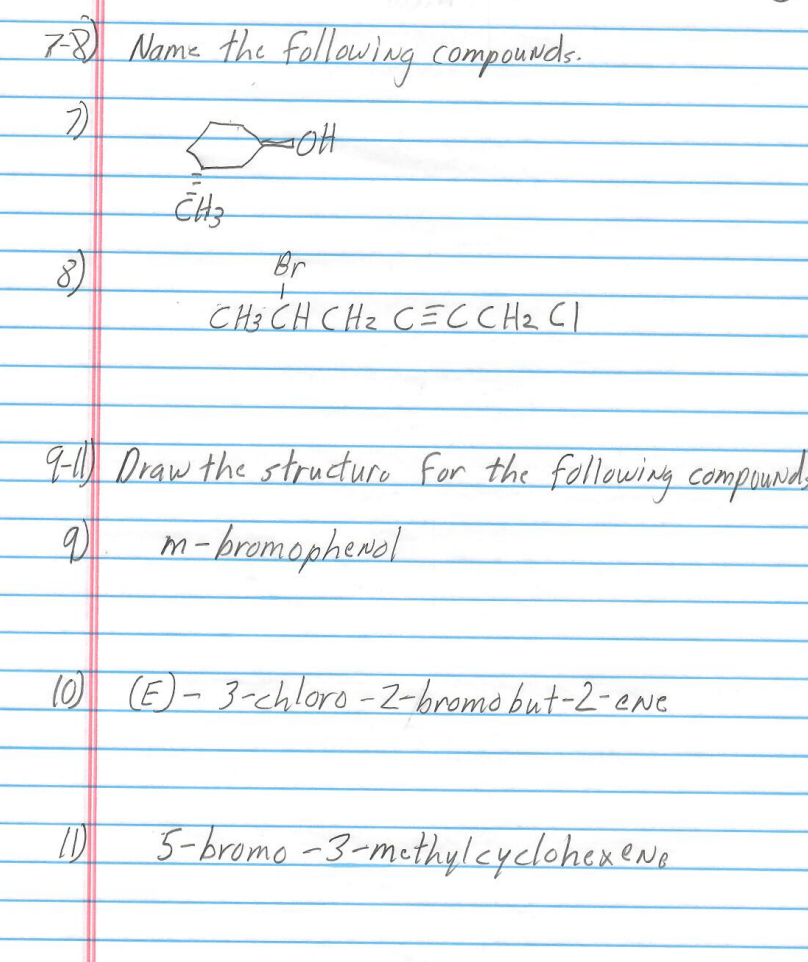 7-8) Name the following compounds.
7)
OH
CH3
8)
Br
CH3 CH CH2 C≡C CH2 Cl
9-11) Draw the structure for the following compounds
9) m-bromophenol
10) (E)-3-chloro-2-bromobut-2-ene
11) 5-bromo-3-methylcyclohexene